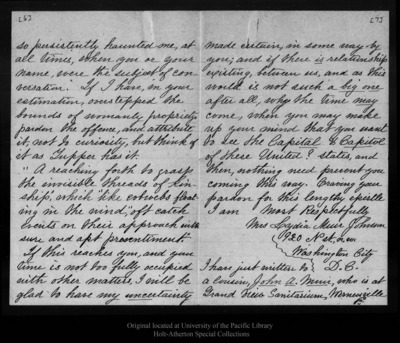 [6]
so persistently haunted me, at
all times, when you or your
name, were the subject of con-
versation. If I have, in your
estimation, overstepped the
bounds of womanly propriety
pardon the offence, and attribute
it, not to curiosity, but think of
it as Tupper has it.
"A reaching forth to grasp
the invisible threads of kin-
ship, which like cobwebs float-
ing in the mind," oft catch
on their approach with
sure and apt presentiment.
If this reaches you, and your
time is not too fully occupied
with other matters, I will be
glad to have my uncertainty
[7]
made certain, in some way by
you; and if there is relationship
existing, between us, and as this
world is not such a big one
after all, why the time may
come, when you may make
up your mind that you want
to see the Capital & Capitol
of these United States, and
then, nothing need prevent you
coming this way. Craving your
pardon for this lengthy epistle
I am Most Respectfully
Mrs Lydia Muir Johnson
920 N. St. N.W.
Washington City
D.C.
I have just written to
a cousin, John A. Muir, who is at
Grand View Sanitarium, Wernersville
Original located at University of the Pacific Library
Holt-Atherton Special Collections